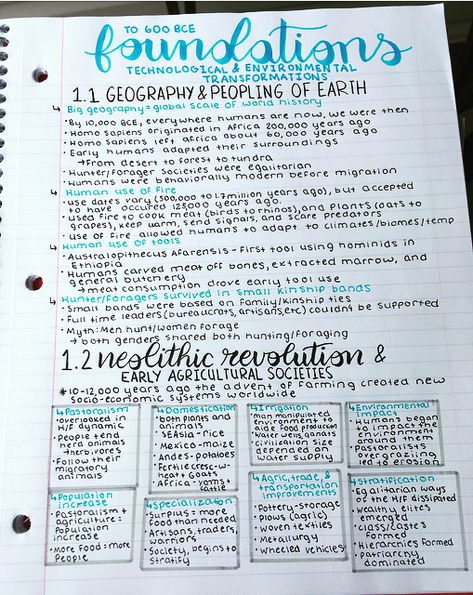 TO 600 BCE
foundations
TECHNOLOGICAL & ENVIRONMENTAL
TRANSFORMATIONS
1.1 GEOGRAPHY & PEOPLING OF EARTH
↳ Big geography = global scale of world history
• By 10,000 BCE, everywhere humans are now, we were then
• Homo sapiens originated in Africa 200,000 years ago
• Homo sapiens left Africa about 60,000 years ago
• Early humans adapted their surroundings
→ From desert to forest to tundra
• Hunter/Forager Societies were equitarian
• Humans were behaviorally modern before migration
↳ Human use of Fire
• Use dates vary (500,000 to 1.7 million years ago), but accepted
to have occured 125,000 years ago.
• Used fire to cook meat (birds to rhinos), and plants (oats to
grapes), keep warm, send signals, and scare predators
• Use of fire allowed humans to adapt to climates/biomes/temp
↳ Human use of tools
• Australopithecus Afarensis - First tool using hominids in
Ethiopia
• Humans carved meat off bones, extracted marrow, and
general butchery
→ meat consumption drove early tool use
↳ Hunter/Foragers survived in small kinship bands
• Small bands were based on family/kinship ties
• Full time leaders (bureaucrats, artisans, etc) couldn't be supported
• Myth: Men hunt/women forage
→ both genders shared both hunting/foraging
1.2 neolithic revolution &
EARLY AGRICULTURAL SOCIETIES
* 10-12,000 years ago the advent of farming created new
socio-economic systems worldwide
↳ Pastoralism
• overlooked in
H/F dynamic
• People tend
herd animals
→ herbivores
• Follow their
migratory
animals
↳ Domestication
• both plants and
animals
• SE Asia - rice
• Mexico - maize
• Andes - potatoes
• Fertile cresc - wheat + goats
• Africa: yams + cattle
↳ Irrigation
• man manipulated
environment to
aide food production
• Water wells, qanats
• civilization size
depended on
water supply
↳ Environmental
impact
• Humans began
to impact the
environment
around them
• Pastoralists
overgrazing
led to erosion
↳ Population
increase
• Pastoralism +
agriculture =
Population
increase
• More food = more
people
↳ Specialization
• Surplus = more
food than needed
• Artisans, traders,
warriors
• Society, begins to
stratify
↳ Agric, trade, &
transportation
improvements
• Pottery - storage
• Plows (agric)
• Woven textiles
• Metallurgy
• Wheeled vehicles
↳ Stratification
• Egalitarian ways of
the H/F dissipated
• Wealthy elites
emerged
• class/castes
formed
• Hierarchies formed
• patriarchy
dominated